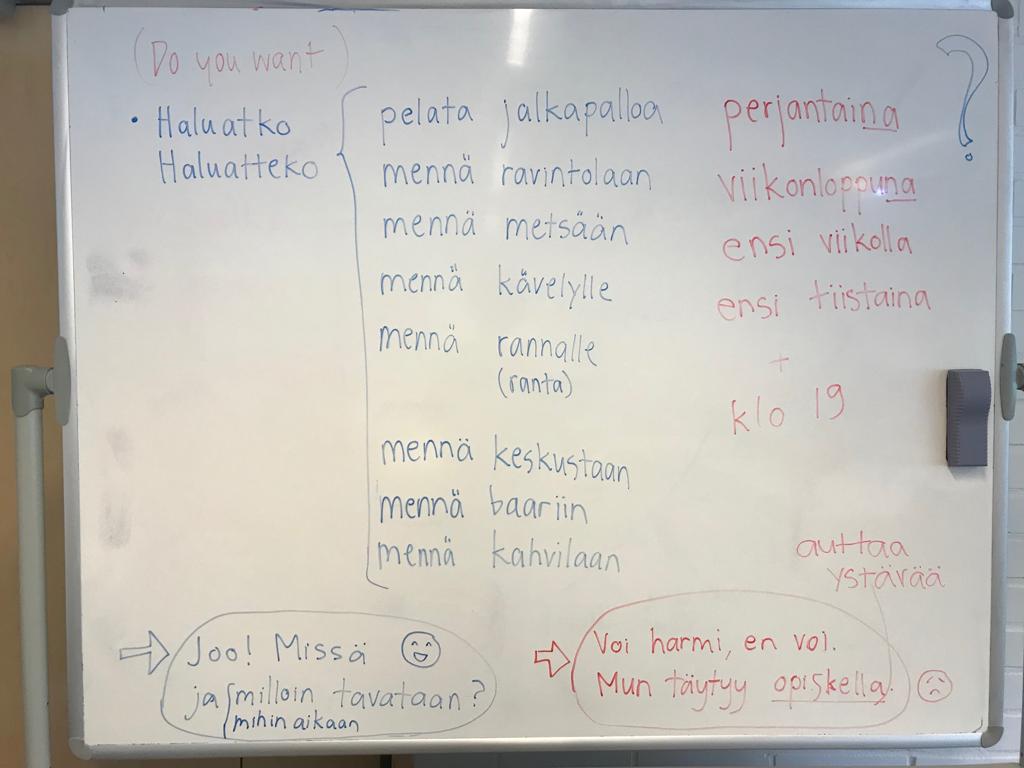 (Do you want)
• Haluatko
Haluatteko
pelata jalkapalloa perjantaina ?
mennä ravintolaan viikonloppuna
mennä metsään ensi viikolla
mennä kävelylle ensi tiistaina
mennä rannalle +
(ranta) klo 19
mennä keskustaan
mennä baariin
mennä kahvilaan
auttaa
ystävää
Joo! Missä
ja milloin tavataan?
mihin aikaan
Voi harmi, en voi.
Mun täytyy opiskella.